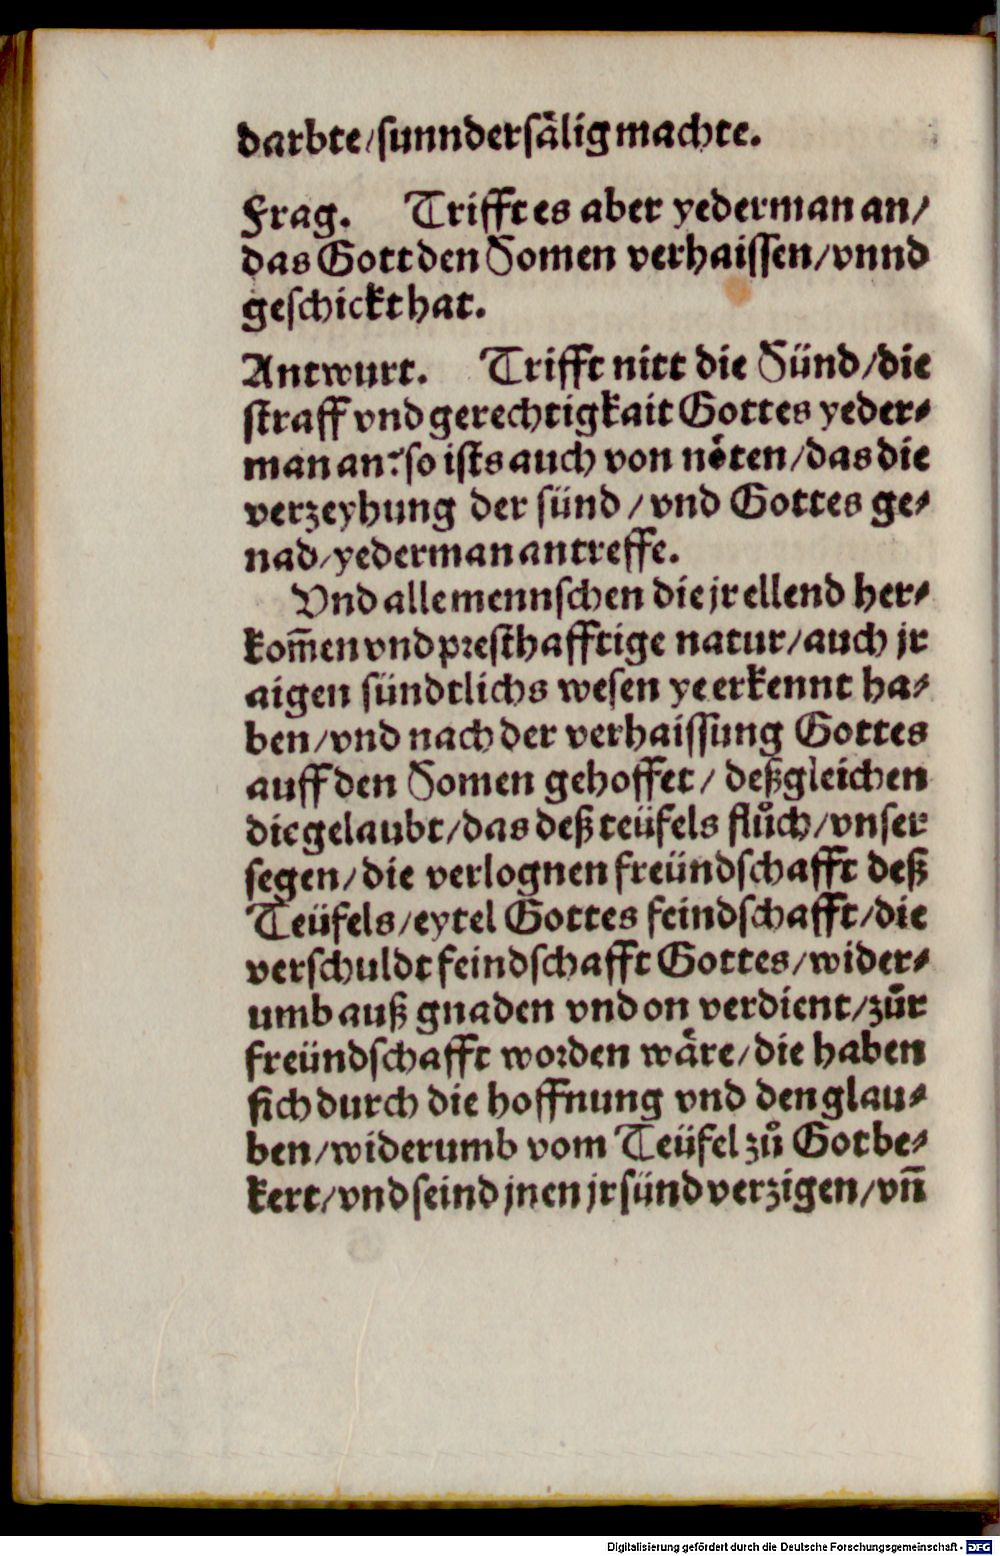 darbte/ sunnder sälig machte.
Frag. Trifft es aber yederman an/
das Gott den Somen verhaissen/ vnnd
geschickt hat.
Antwurt. Trifft nitt die Sünd/ die
straff vnd gerechtigkait Gottes yeder⸗
man an? so ists auch von nöten/ das die
verzeyhung der sünd / vnd Gottes ge⸗
nad/ yederman antreffe.
Vnd alle mennschen die jr ellend her⸗
kom̃en vnd presthafftige natur/ auch jr
aigen sündtlichs wesen ye erkennt ha⸗
ben/ vnd nach der verhaissung Gottes
auff den Somen gehoffet/ deßgleichen
die gelaubt/ das deß teüfels flůch/ vnser
segen/ die verlognen freündschafft deß
Teüfels/ eytel Gottes feindschafft/ die
verschuldt feindschafft Gottes/ wider⸗
umb auß gnaden vnd on verdient/ zůr
freündschafft worden wäre/ die haben
sich durch die hoffnung vnd den glau⸗
ben/ widerumb vom Teüfel zů Got be⸗
kert/ vnd seind jnen jr sünd verzigen/ vñ
Digitalisierung gefördert durch die Deutsche Forschungsgemeinschaft - DFG